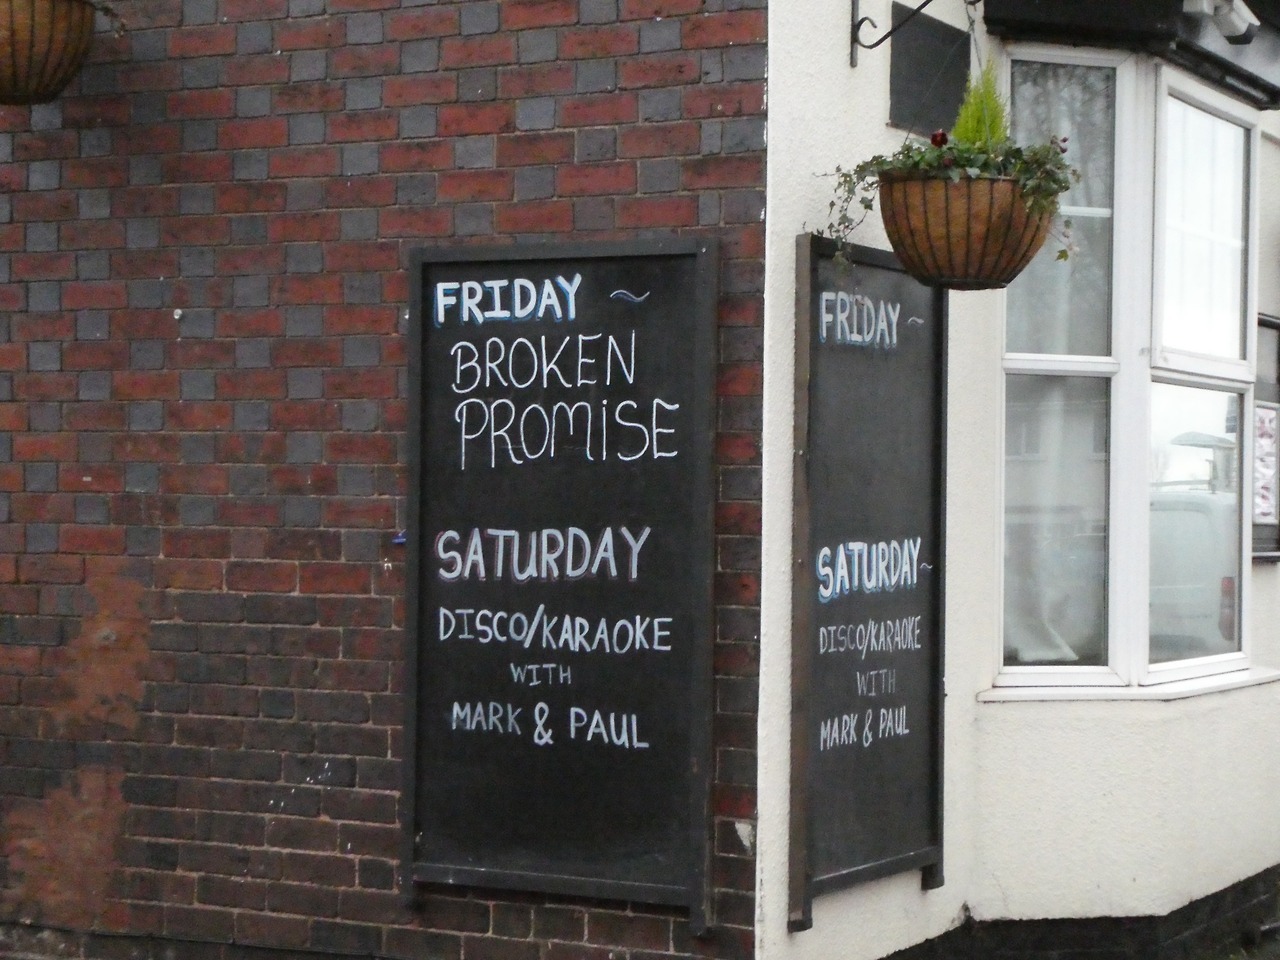 FRIDAY ~
BROKEN
PROMISE
SATURDAY
DISCO/KARAOKE
WITH
MARK & PAUL
FRIDAY ~
SATURDAY~
DISCO/KARAOKE
WITH
MARK & PAUL